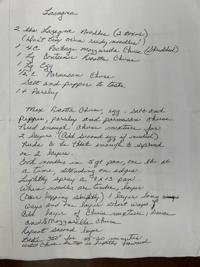 Lasagna
2 lbs Lasagna Noodles (2 boxes)
(Don't buy oven ready noodles)
1 4C Package Mozzarella Cheese (Shredded)
1 Lg Container Ricotta Cheese
1 Lg Egg
1/2 C. Parmesan Cheese
Salt and pepper to taste
1 t Parsley
Mix Ricotta Cheese, egg, salt and
pepper, parsley and parmesan cheese.
Need enough cheese mixture for
2 layers (Add second egg if needed)
Needs to be thick enough to spread
on 2 layers
Cook noodles in 5 qt pan, one lb at
a time, standing on edges
Lightly spray a 9 x 13 pan
When noodles are tender, layer
(Over lapping slightly) 1 layer long
ways and one layer short ways
Add layer of Cheese mixture, sauce
and Mozzarella Cheese
Repeat second layer
Bake 350° for minutes
until Cheese is lightly browned